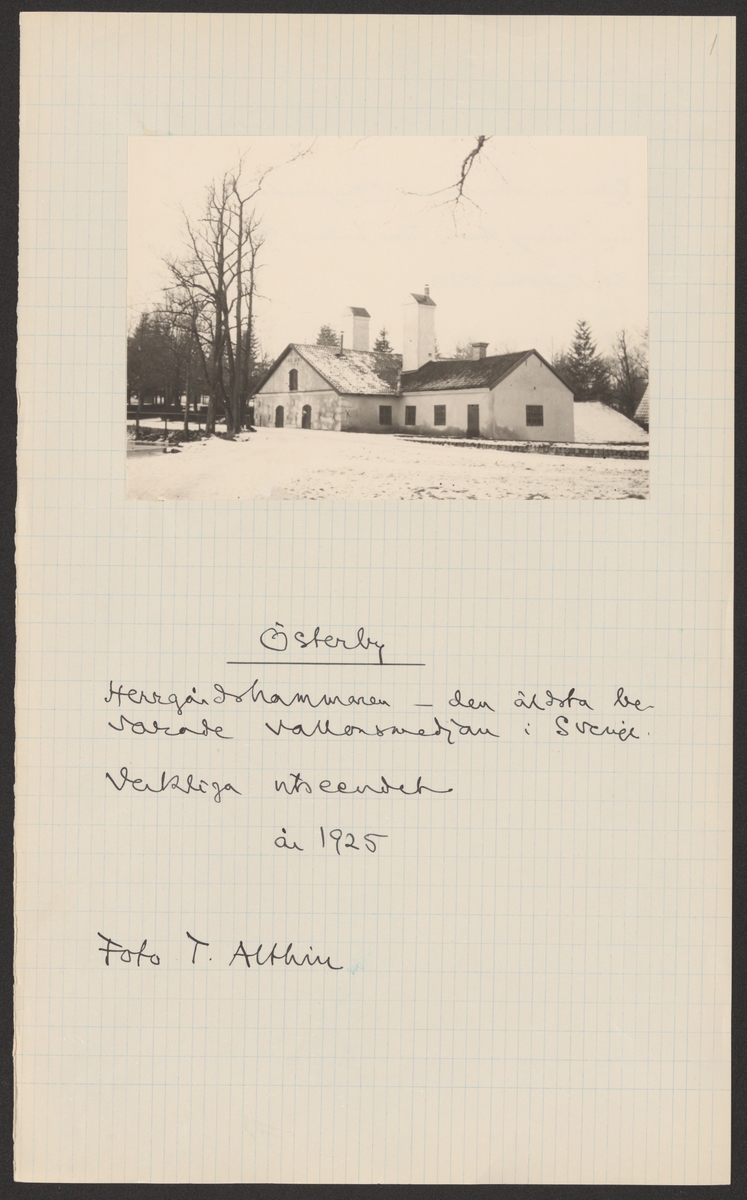 /
Österby
Herrgårdshammaren – den äldsta be-
varade vallonsmedjan i Sverige.
Verkliga utseendet
år 1925
Foto T. Althin